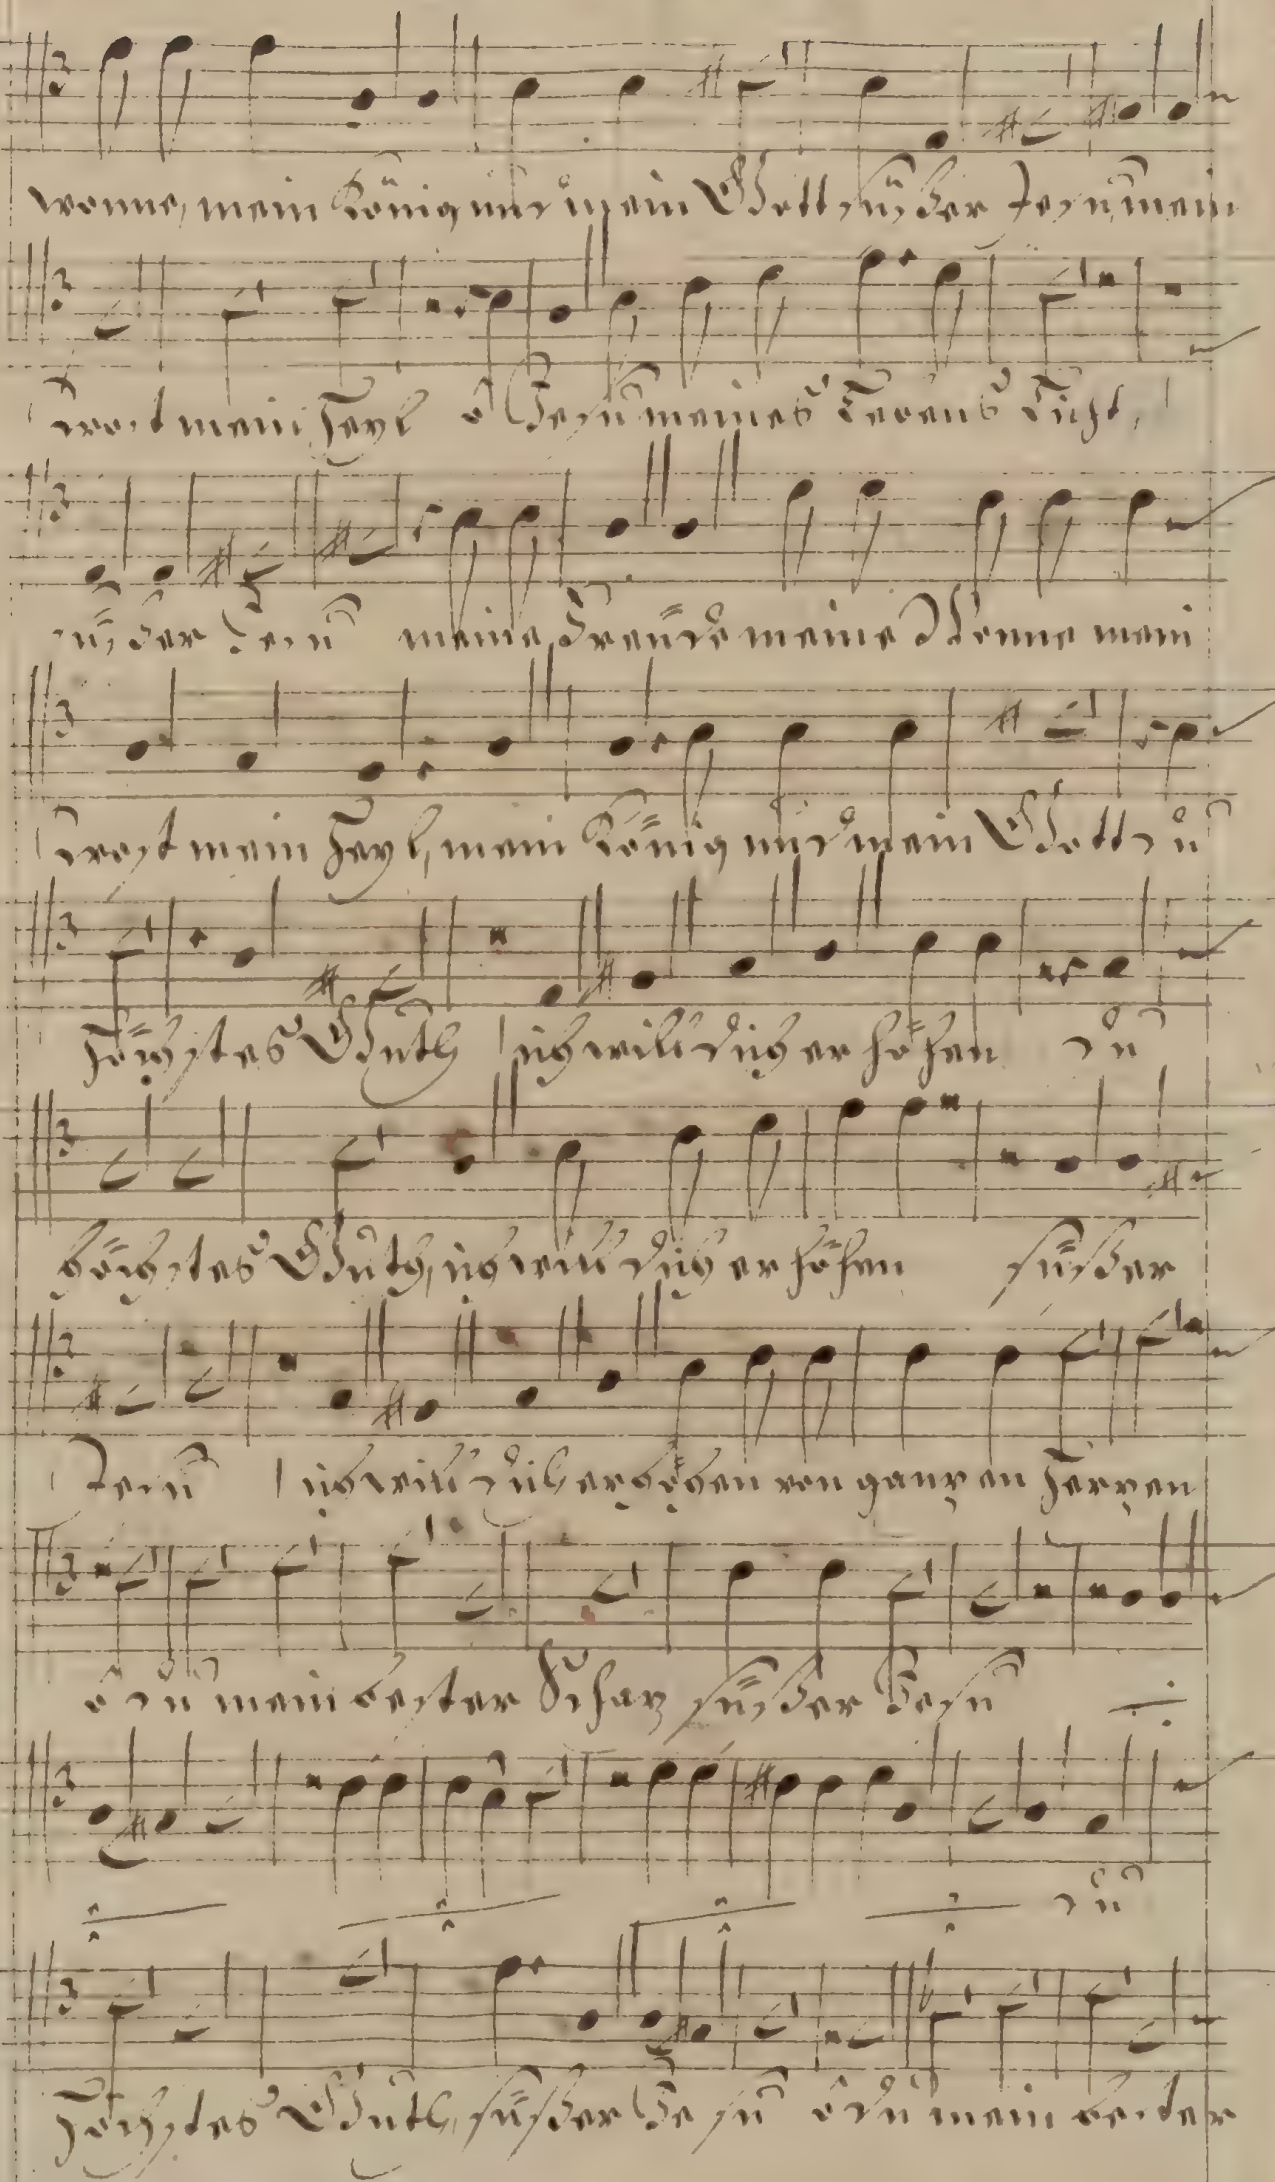 wonne, mein König und mein Gott süßer Jesu, mein
trost mein Heyl o Jesu meines Lebens Licht,
süßer Jesu meine Freüde meine Wonne mein
trost mein Heyl, mein König und mein Gott du
höchstes Guth ich will dich erhöhen du
höchstes Guth, ich will dich erhöhen süßer
Jesu ich will dich erhöhen von ganzen Herzen
o du mein bester Schaz süßer Jesu
du
höchstes Guth, süßer Jesu o du mein bester